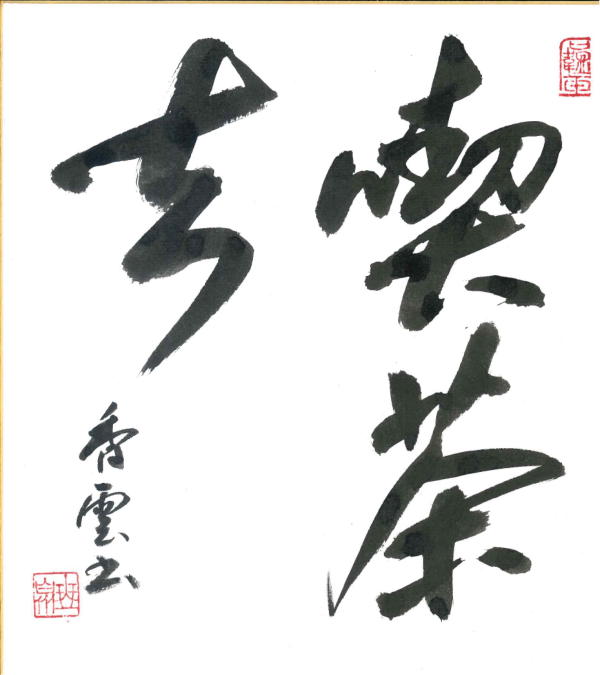 喫茶
去
香雲書